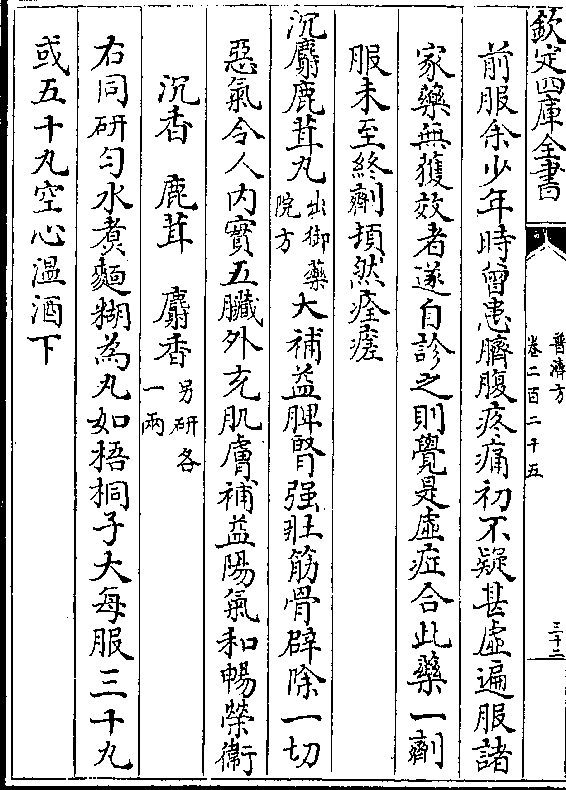 欽定四庫全書
普濟方
卷二百二十五
三十二
前服余少年時曾患臍腹疼痛初不疑甚虛遍服諸
家藥無獲效者遂自診之則覺是虛症合此藥一劑
服未至終劑頓然痊瘥
沉麝鹿茸丸出御藥院方大補益脾腎强壯筋骨辟除一切
惡氣令人内實五臟外充肌膚補益陽氣和暢榮衛
沉香 鹿茸 麝香另研各一兩
右同研勻水煮麵糊為丸如梧桐子大每服三十丸
或五十丸空心溫酒下